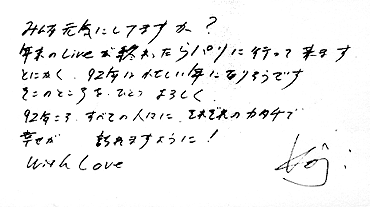 みんな元気にしてますか?
年末のLiveが終わったらパリに行って来ます
とにかく、92年は忙しい年になりそうです
そこのところを、ひとつ よろしく
92年こそ、すべての人々に、それぞれのカタチで
幸せが 訪れますように!
With Love